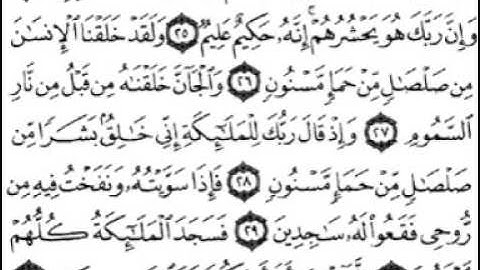 وَإِنَّ رَبَّكَ هُوَ يَحْشُرُهُمْ ۚ إِنَّهُۥ حَكِيمٌ عَلِيمٌ ٢٥ وَلَقَدْ خَلَقْنَا ٱلْإِنسَٰنَ
مِن صَلْصَٰلٍ مِّنْ حَمَإٍ مَّسْنُونٍ ٢٦ وَٱلْجَآنَّ خَلَقْنَٰهُ مِن قَبْلُ مِن نَّارِ
ٱلسَّمُومِ ٢٧ وَإِذْ قَالَ رَبُّكَ لِلْمَلَٰٓئِكَةِ إِنِّى خَٰلِقٌۢ بَشَرًا مِّن
صَلْصَٰلٍ مِّنْ حَمَإٍ مَّسْنُونٍ ٢٨ فَإِذَا سَوَّيْتُهُۥ وَنَفَخْتُ فِيهِ مِن
رُّوحِى فَقَعُوا۟ لَهُۥ سَٰجِدِينَ ٢٩ فَسَجَدَ ٱلْمَلَٰٓئِكَةُ كُلُّهُمْ